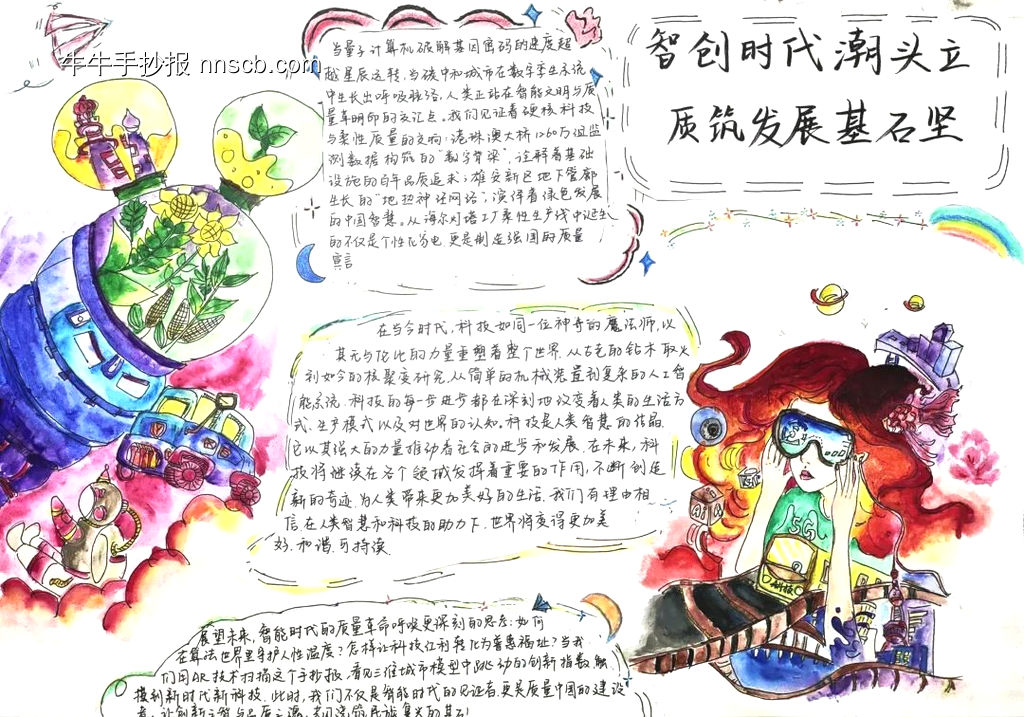 牛牛手抄报 nnscb.com
智创时代潮头立
质筑发展基石坚
当量子计算机破解基因密码的速度超
越星辰运转,当碳中和城市在数字孪生系统
中生长出呼吸脉络,人类正站在智能文明与质
量革命的交汇点。我们见证着硬核科技
与柔性质量的交响:港珠澳大桥1260万组监
测数据构筑的"数字脊梁",诠释着基础
设施的百年品质追求;雄安新区地下管廊
生长的"地热神经网络",演绎着绿色发展
的中国智慧。从海尔灯塔工厂柔性生产线中诞生
的不仅是个性化家电,更是制造强国的质量
宣言
在当今时代,科技如同一位神奇的魔法师,以
其无与伦比的力量重塑着整个世界,从古老的钻木取火
到如今的核聚变研究,从简单的机械装置到复杂的人工智
能系统,科技的每一步进步都在深刻地改变着人类的生活方
式、生产模式以及对世界的认知。科技是人类智慧的结晶
它以其强大的力量推动着社会的进步和发展,在未来,科
技将继续在各个领域发挥着重要的作用,不断创造
新的奇迹,为人类带来更加美好的生活,我们有理由相
信,在人类智慧和科技的助力下,世界将变得更加美
好、和谐、可持续
5G
科技
展望未来,智能时代的质量革命呼唤更深刻的思考:如何
在算法世界里守护人性温度?怎样让科技红利转化为普惠福祉?当我
们用AR技术扫描这个手抄报,看见三维城市模型中跳动的创新指数,触
摸到新时代新科技,此时,我们不仅是智能时代的见证者,更是质量中国的建设
者,让创新之智与品质之源,共同浇筑民族复兴的基石